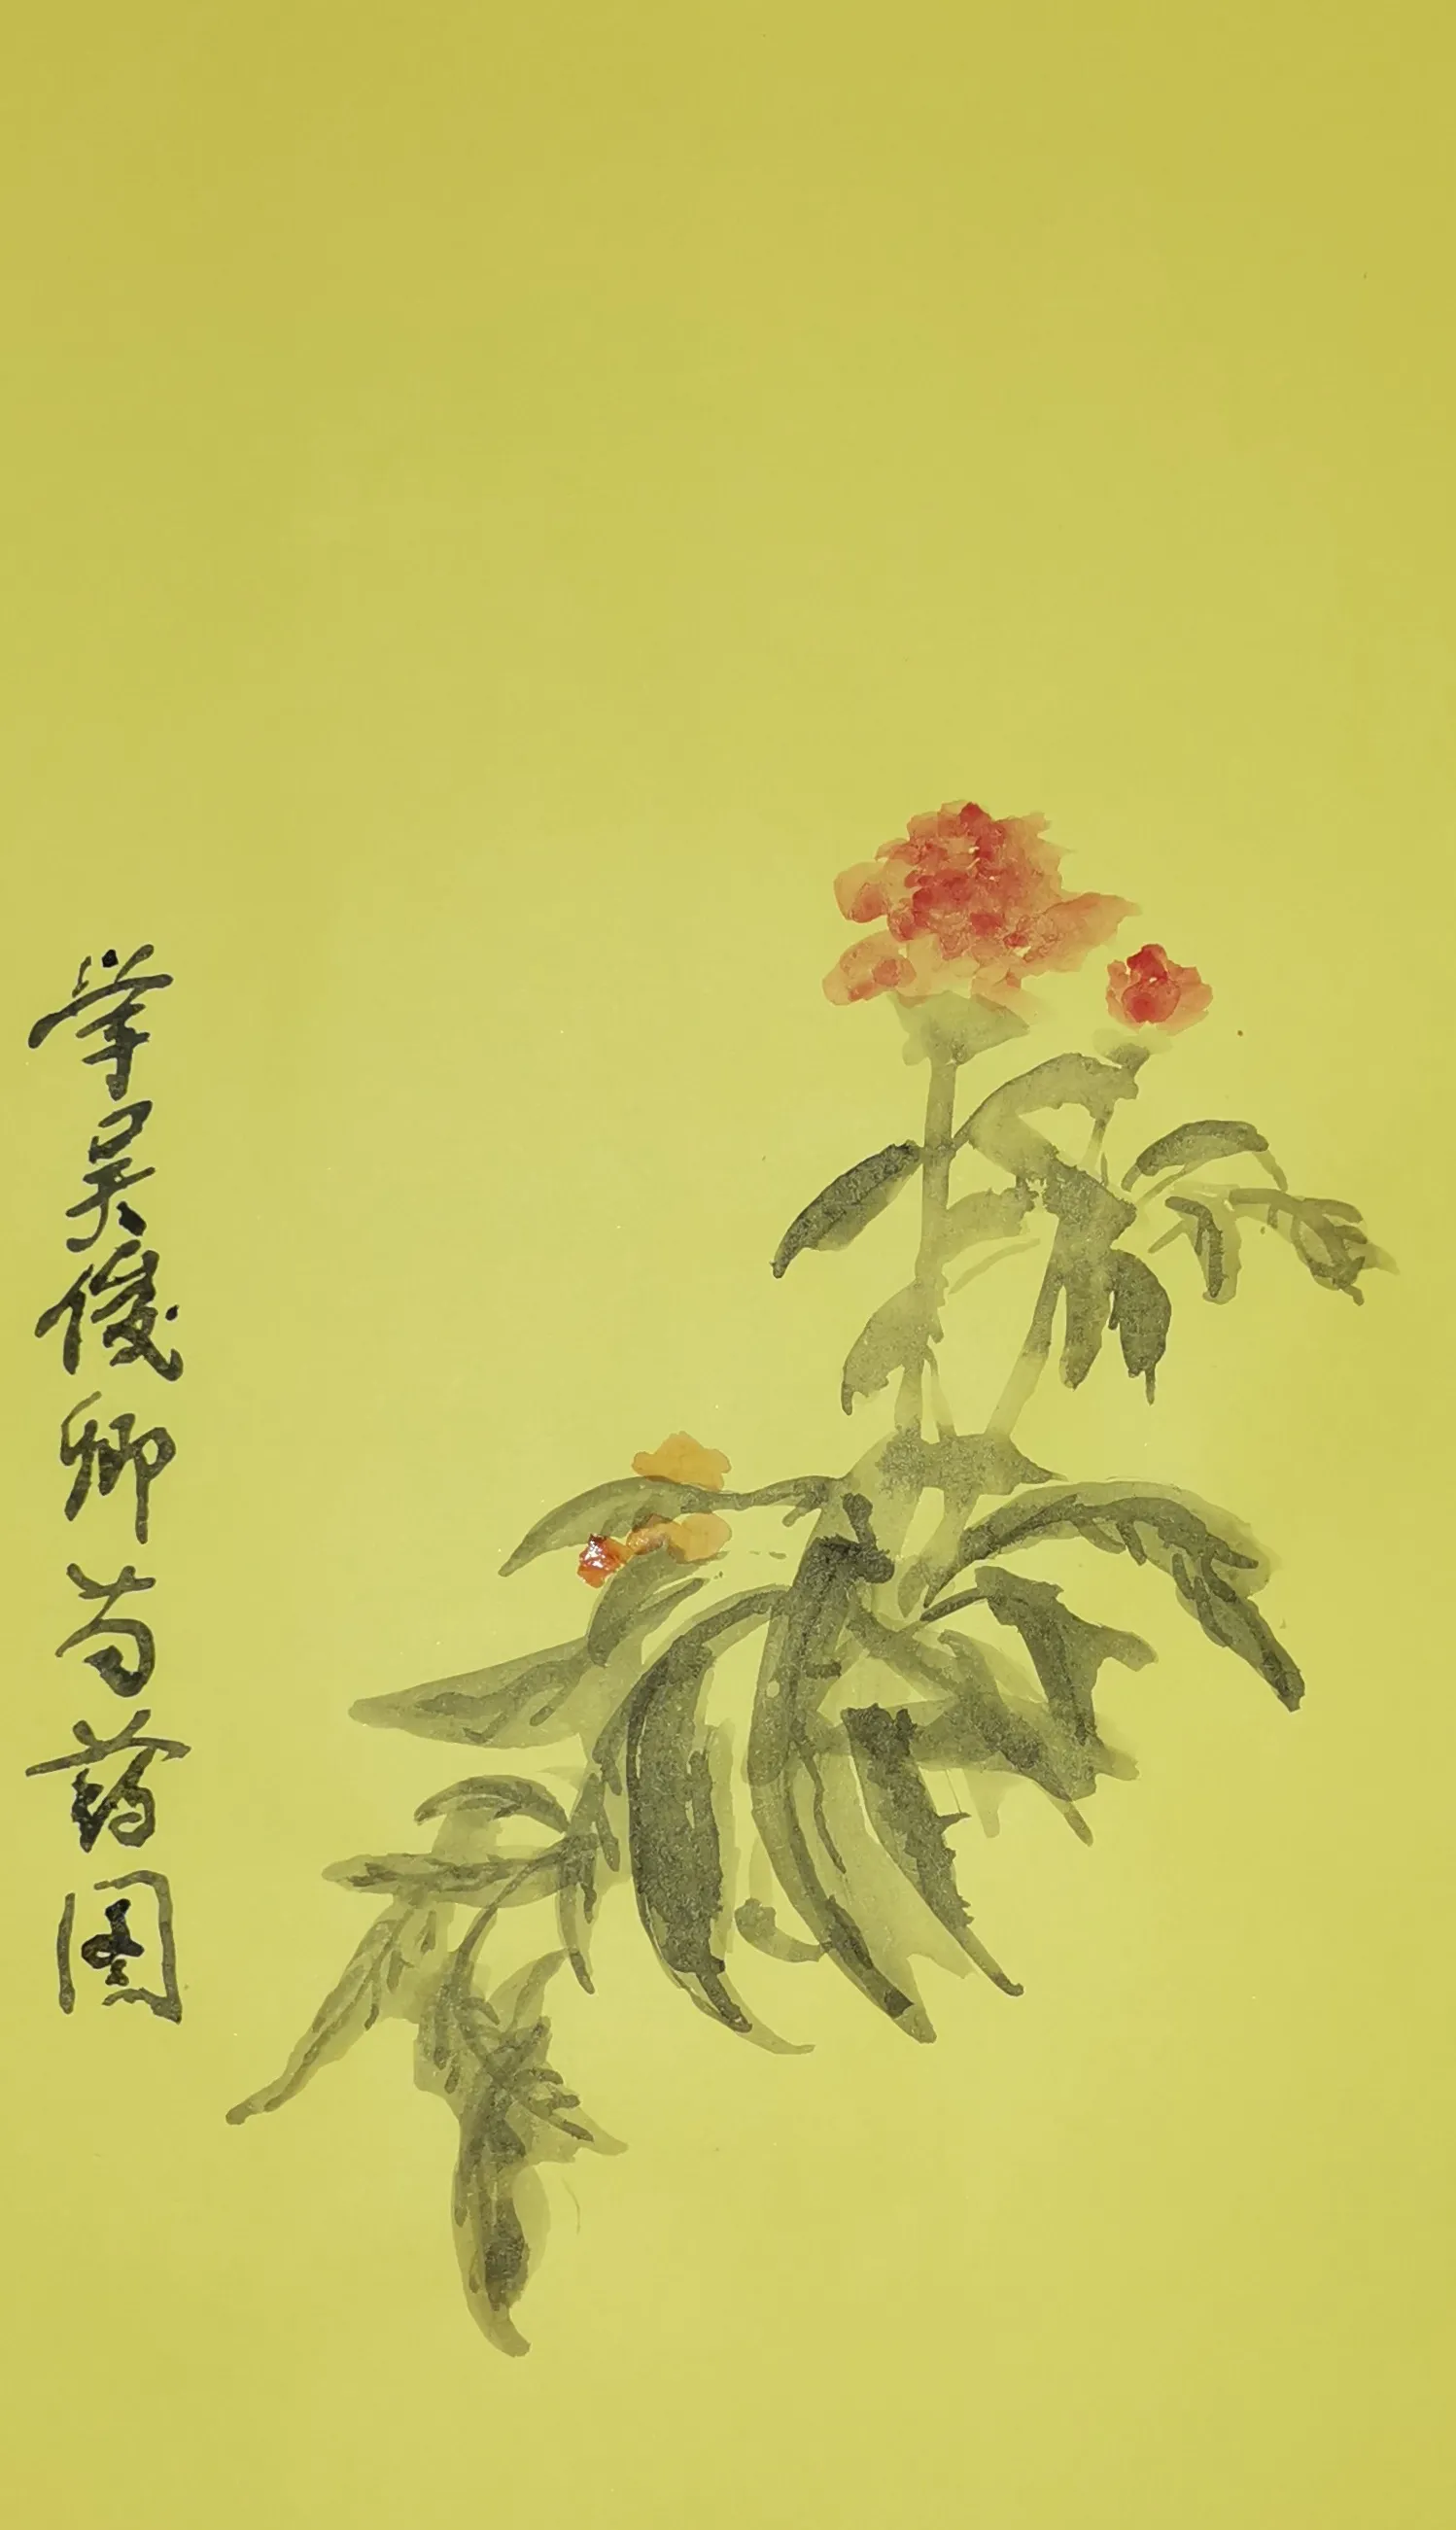 学吴俊卿芍药图